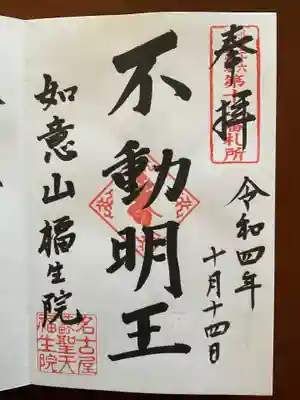 奉拝
令和四年
十月十四日
不動明王
如意山福生院
名古屋
聖天
福生院